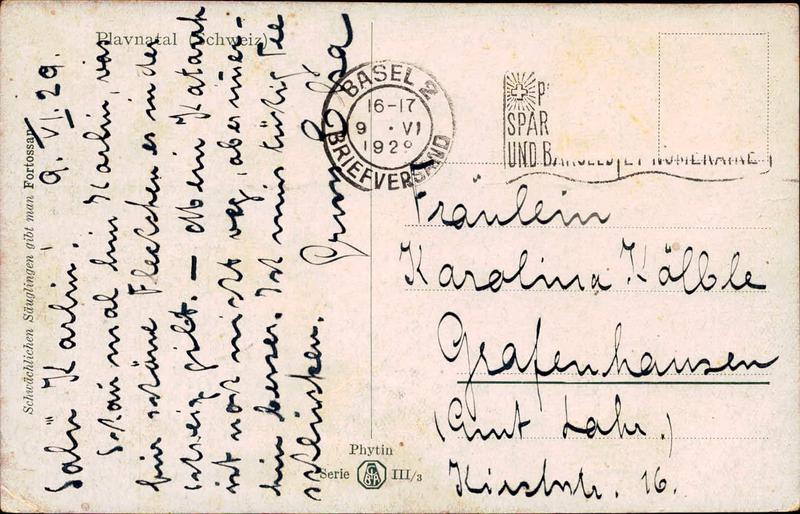 Plavnatal (Schweiz)
Schwächlichen Säuglingen gibt man Fortossan
9. VI. 29.
Karlin!
Schau mal hin Karlin, was
für schöne Fleckchen es in der
Schweiz gibt. – Mein Katarrh
ist noch nicht weg, aber immer-
hin besser. Ist nur tüchtig Tee
schlucken.
Gruss
BASEL 2
16-17
9 · VI
1929
BRIEFVERSAND
P
SPAR
UND B
Fräulein
Karolina Kölble
Grafenhausen
(Amt Lahr.)
Kirchstr. 16.
Phytin
Serie III/3